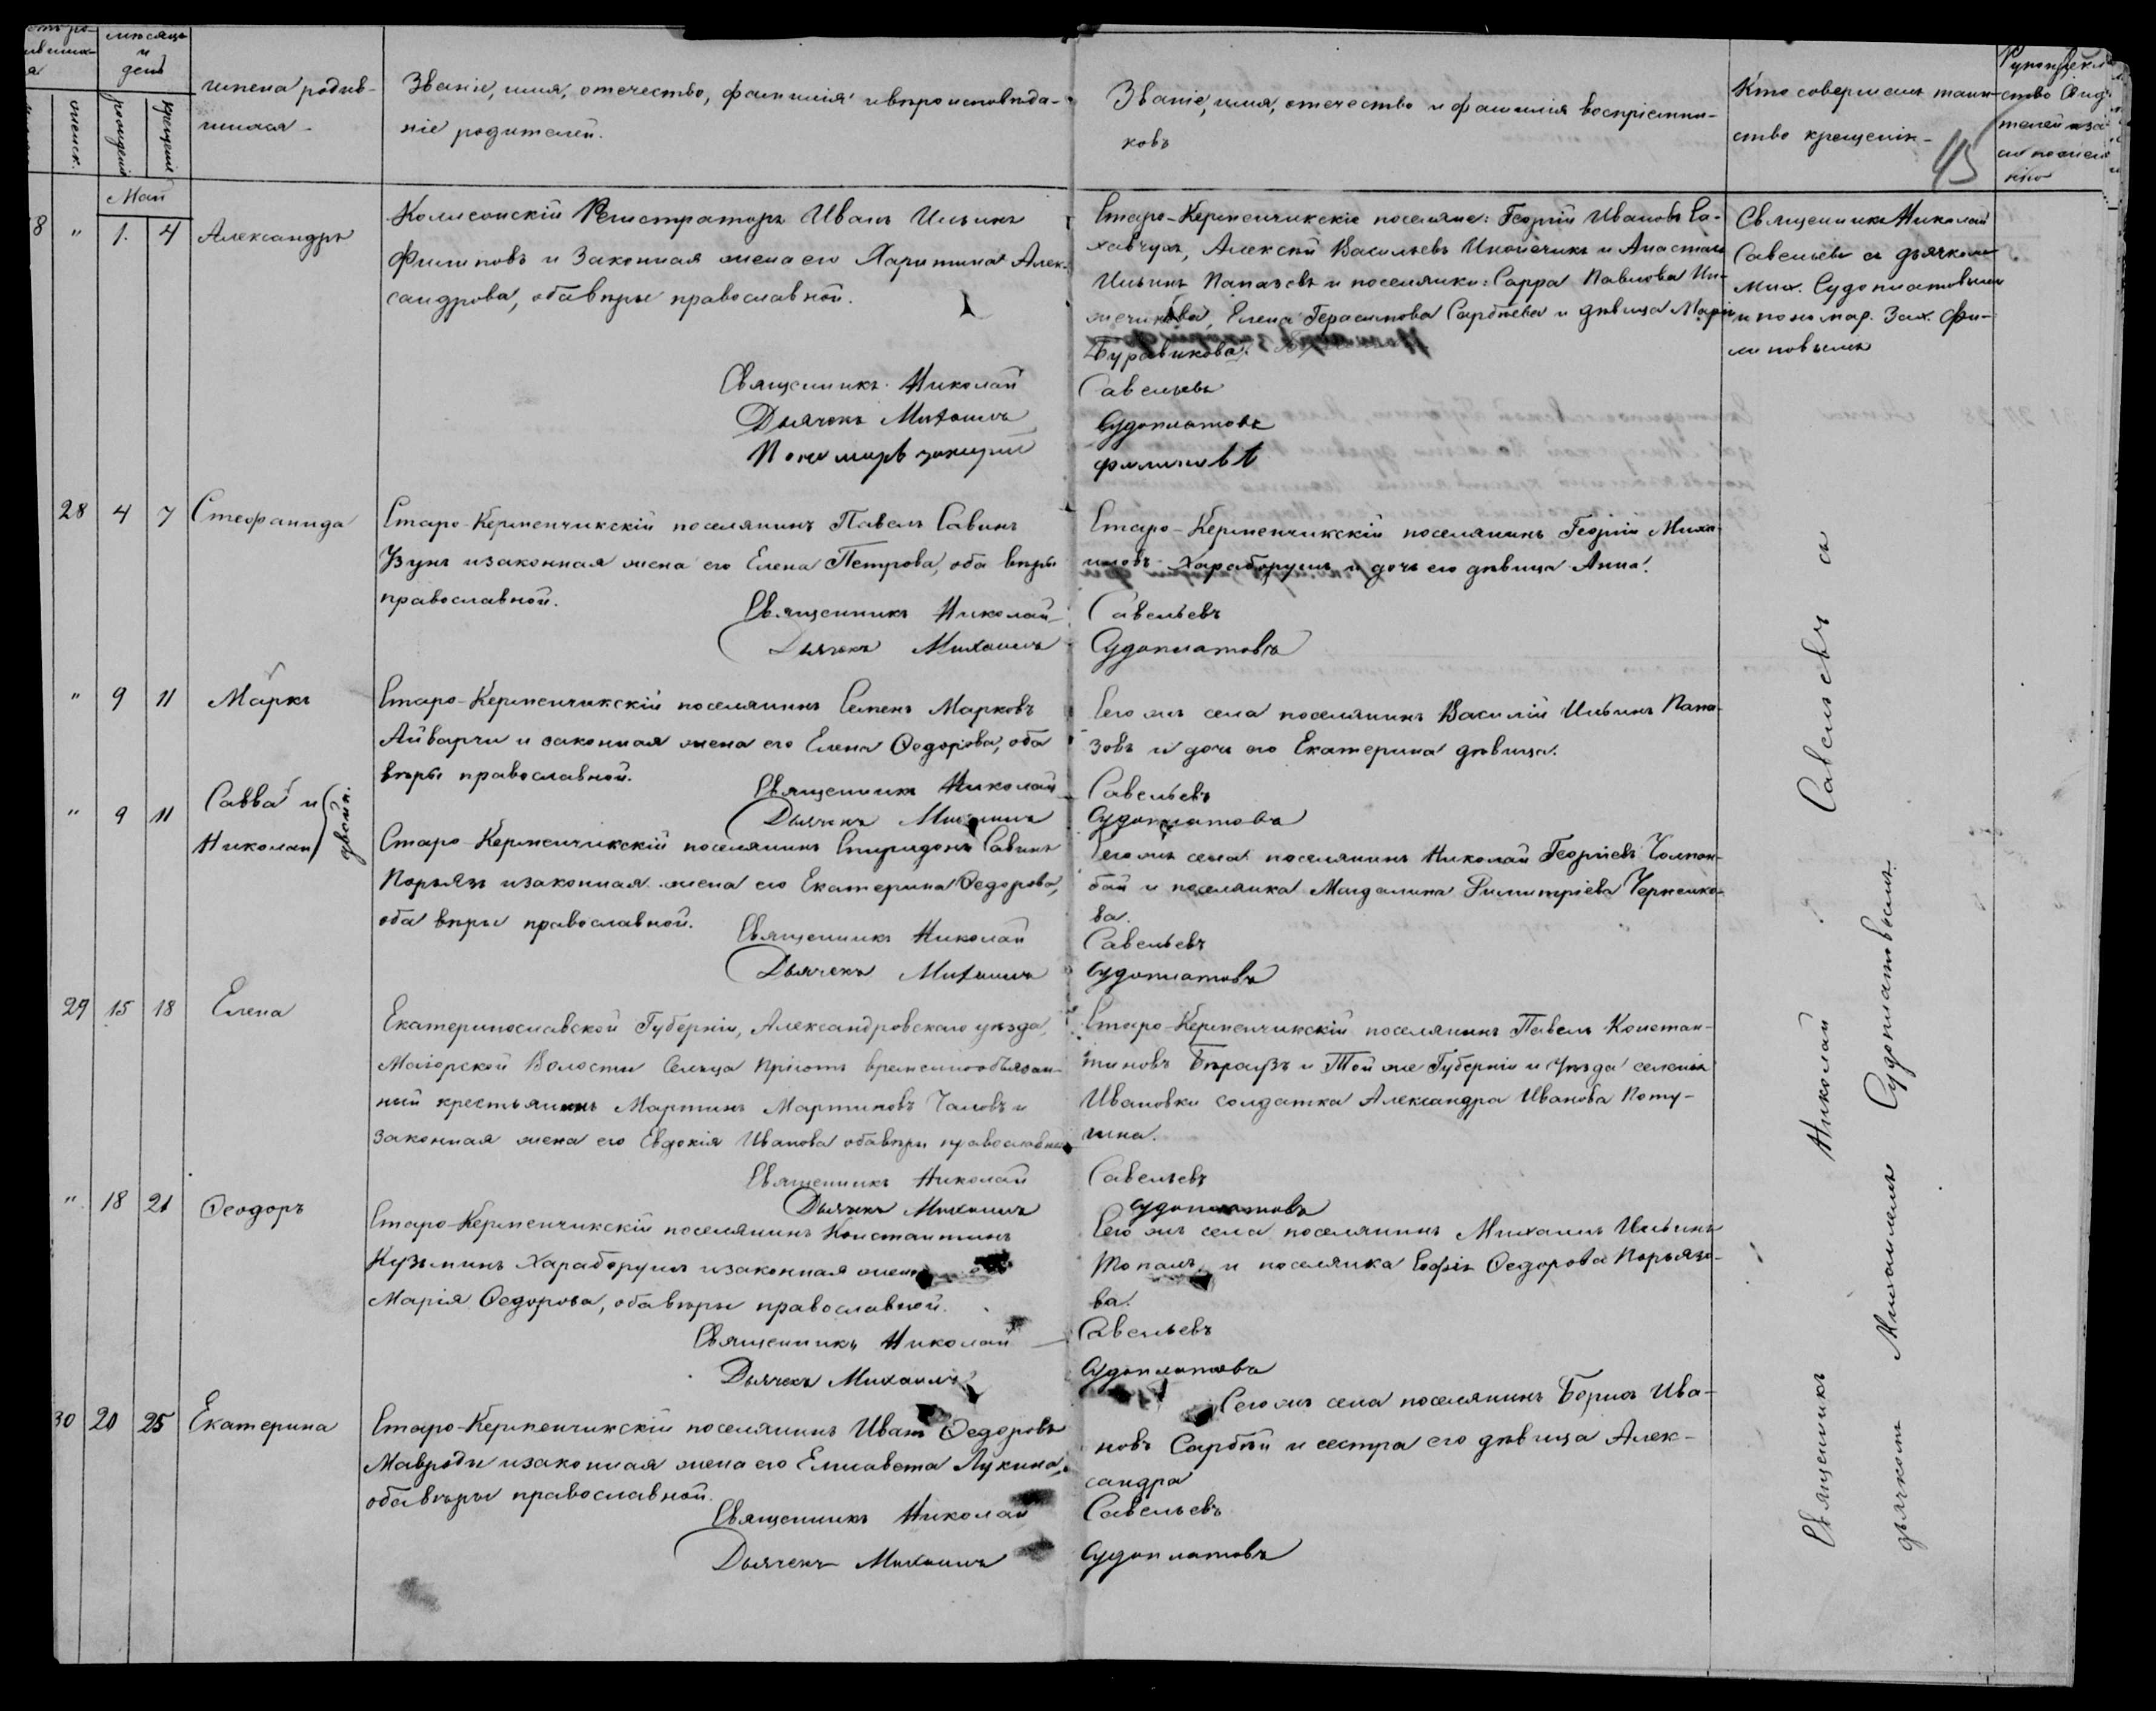 мѣсяцъ
и
день
имена родив-
шихся.
Званіе, имя, отечество, фамилія и вѣроисповѣда-
ніе родителей.
Званіе, имя, отечество и фамилія воспріемни-
ковъ
Кто совершалъ таин-
ство крещенія.
женск.
рожденія
крещенія
Май
8 " 1. 4 Александръ
Колежскій Регистраторъ Иванъ Ильинъ
Филиповъ и Законная жена его Харитина Алек-
сандрова, оба вѣры православной.
Старо-Керменчикскіе поселяне: Георгій Ивановъ Са-
хавчузъ, Алексѣй Васильевъ и Анастасъ
Ильинъ Папазовъ и поселянки: Сарра Павлова
Елена Герасимова Сарбѣева и дѣвица Марія
Буравикова.
Священникъ Николай
Савельевъ съ дьячкомъ
Мих. Судоплатовымъ
и пономар. Зах. Фи-
липовымъ
Священникъ Николай Савельевъ
Дьячекъ Михаилъ Судоплатовъ
Пономарь Захарій Филиповъ
28 4 7 Стефанида
Старо-Керменчикскій поселянинъ Павелъ Савинъ
Узунъ и законная жена его Елена Петрова, оба вѣры
православной.
Старо-Керменчикскій поселянинъ Георгій Миха-
иловъ Хараборушъ и дочь его дѣвица Анна.
Священникъ Николай Савельевъ
Дьячекъ Михаилъ Судоплатовъ
" 9 11 Маркъ
Старо-Керменчикскій поселянинъ Семенъ Марковъ
Айварчи и законная жена его Елена Ѳедорова, оба
вѣры православной.
Сего же села поселянинъ Василій Ильинъ Папа-
зовъ и дочь его Екатерина дѣвица.
Священникъ Николай Савельевъ
Дьячекъ Михаилъ Судоплатовъ
" 9 11 Савва и
Николай
двойн.
Старо-Керменчикскій поселянинъ Спиридонъ Савинъ
Порьязъ и законная жена его Екатерина Ѳедорова,
оба вѣры православной.
Сего же села поселянинъ Николай Георгіевъ Чолпан-
бай и поселянка Магдалина Димитріева Черкенко-
ва.
Священникъ Николай Савельевъ
Дьячекъ Михаилъ Судоплатовъ
29 15 18 Елена
Екатеринославской Губерніи, Александровскаго уѣзда,
Маіорской Волости Сельца Пріютъ временнообязан-
ный крестьянинъ Мартинъ Мартиновъ Чаловъ и
законная жена его Евдокія Иванова оба вѣры православной
Старо-Керменчикскій поселянинъ Павелъ Констан-
тиновъ Бѣраузъ и Той же Губерніи и Уѣзда селенія
Ивановки солдатка Александра Иванова Поту-
гина.
Священникъ Николай Савельевъ
Дьячекъ Михаилъ Судоплатовъ
" 18 21 Ѳеодоръ
Старо-Керменчикскій поселянинъ Константинъ
Кузьминъ Хараборушъ и законная жена его
Марія Ѳедорова, оба вѣры православной.
Сего же села поселянинъ Михаилъ Ильинъ
Топалъ, и поселянка Софія Ѳедорова Порьязо-
ва.
Священникъ Николай Савельевъ
Дьячекъ Михаилъ Судоплатовъ
30 20 25 Екатерина
Старо-Керменчикскій поселянинъ Иванъ Ѳедоровъ
Мавроди и законная жена его Елисавета Лукина,
оба вѣры православной.
Сего же села поселянинъ Борисъ Ива-
новъ Сарбѣй и сестра его дѣвица Алек-
сандра
Священникъ Николай Савельевъ
Дьячекъ Михаилъ Судоплатовъ
Священникъ Николай Савельевъ съ
дьячкомъ Михаиломъ Судоплатовымъ.